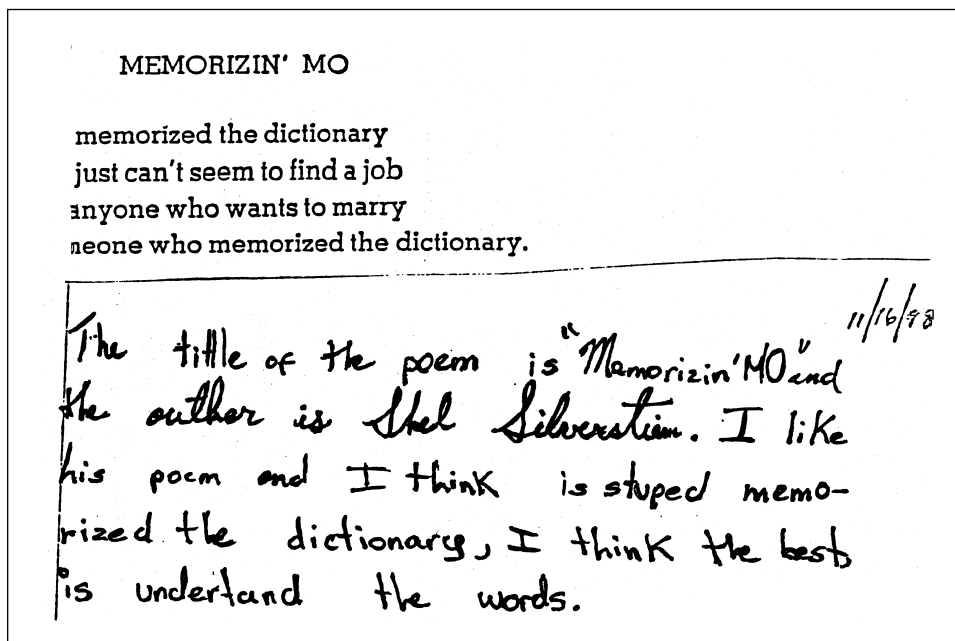 MEMORIZIN' MO
memorized the dictionary
just can't seem to find a job
anyone who wants to marry
meone who memorized the dictionary.
11/16/98
The tittle of the poem is "Memorizin' MO" and
the outher is Shel Silverstiem. I like
his poem and I think is stuped memo-
rized the dictionary, I think the best
is undertand the words.